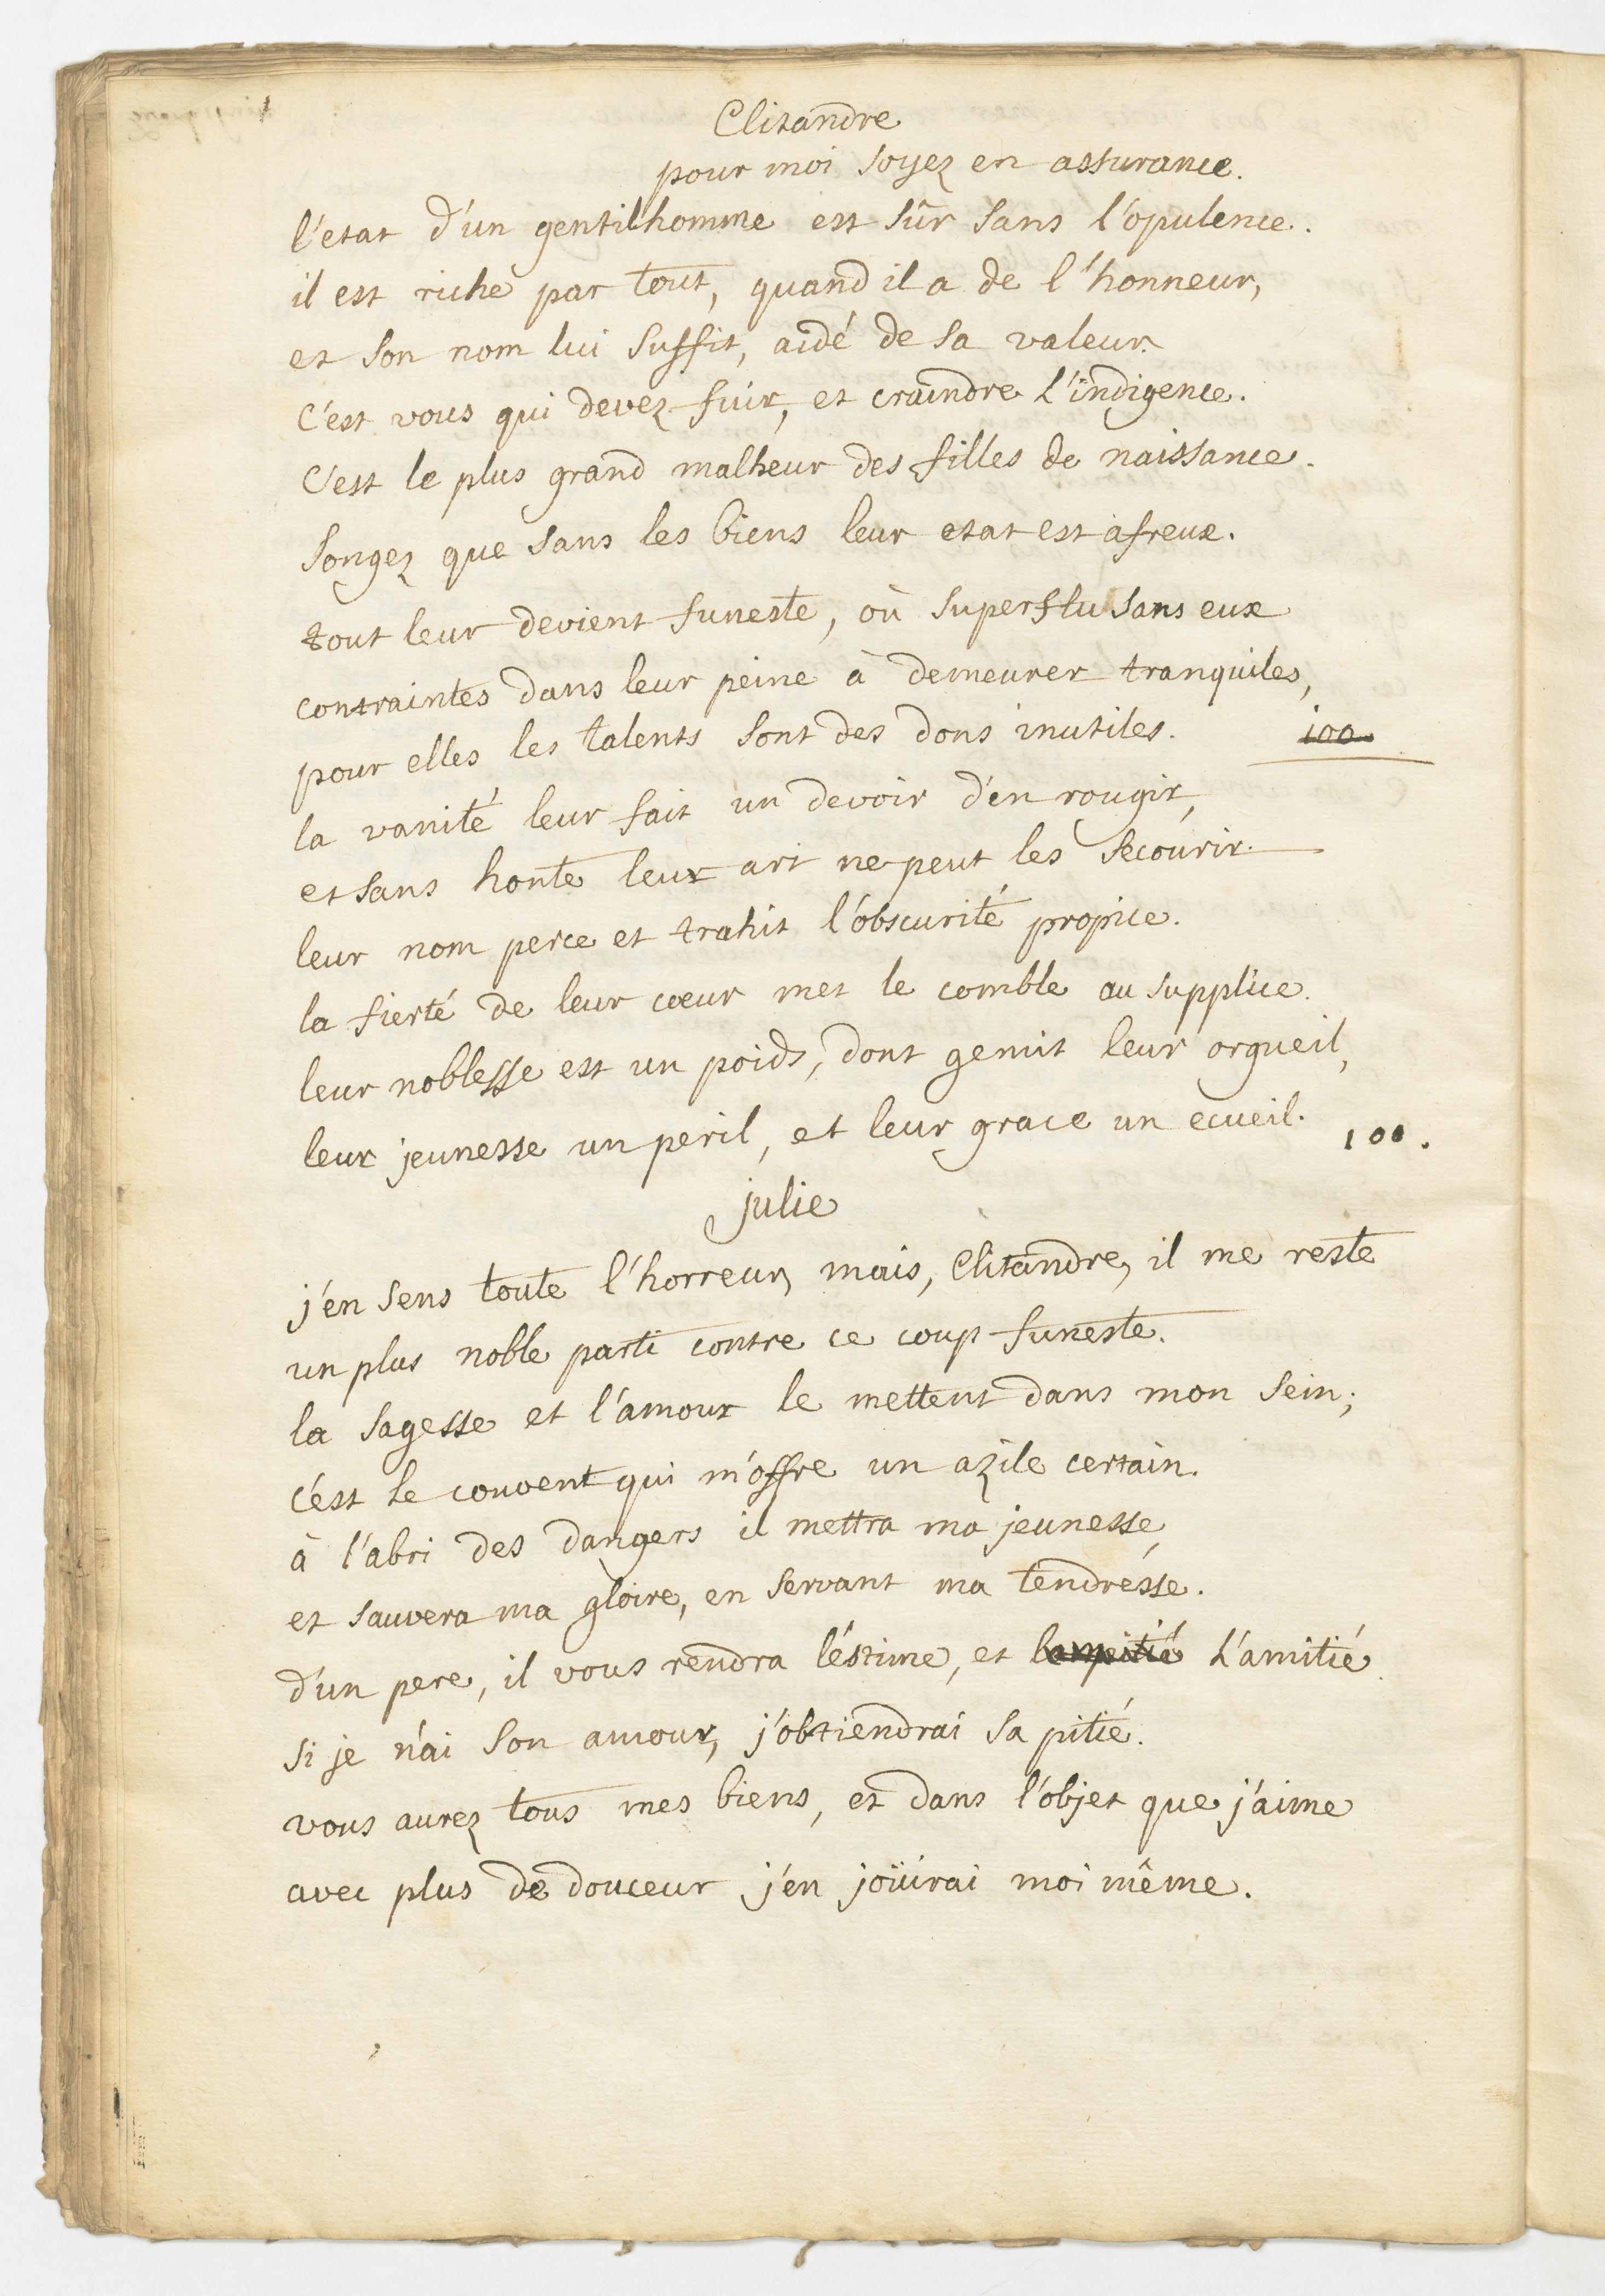 Clitandre
pour moi soyez en assurance.
l'etat d'un gentilhomme est sûr sans l'opulence.
il est riche par tout, quand il a de l'honneur,
et son nom lui suffit, aidé de sa valeur.
C'est vous qui devez fuir, et craindre l'indigence.
C'est le plus grand malheur des filles de naissance.
Songez que sans les biens leur etat est afreux.
tout leur devient funeste, où superflu sans eux
contraintes dans leur peine à demeurer tranquiles,
pour elles les talents sont des dons inutiles. 100
la vanité leur fait un devoir d'en rougir,
et sans honte leur art ne peut les secourir.
leur nom perce et trahit l'obscurité propice.
la fierté de leur cœur met le comble au supplice.
leur noblesse est un poids, dont gemit leur orgueil,
leur jeunesse un peril, et leur grace un ecueil. 100.
julie
j'en sens toute l'horreur, mais, Clitandre, il me reste
un plus noble parti contre ce coup funeste.
la sagesse et l'amour le mettent dans mon sein;
c'est le couvent qui m'offre un azile certain.
à l'abri des dangers il mettra ma jeunesse,
et sauvera ma gloire, en servant ma tendresse.
d'un pere, il vous rendra l'estime, et la pitié l'amitié.
si je n'ai son amour, j'obtiendrai sa pitié.
vous aurez tous mes biens, et dans l'objet que j'aime
avec plus de douceur j'en joüirai moi même.